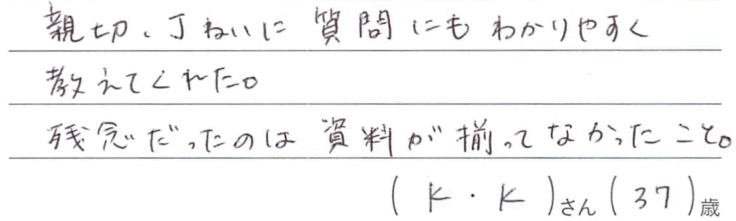 親切、丁ねいに 質問にも わかりやすく
教えてくれた。
残念だったのは 資料が揃ってなかったこと。
(K・K)さん(37)歳